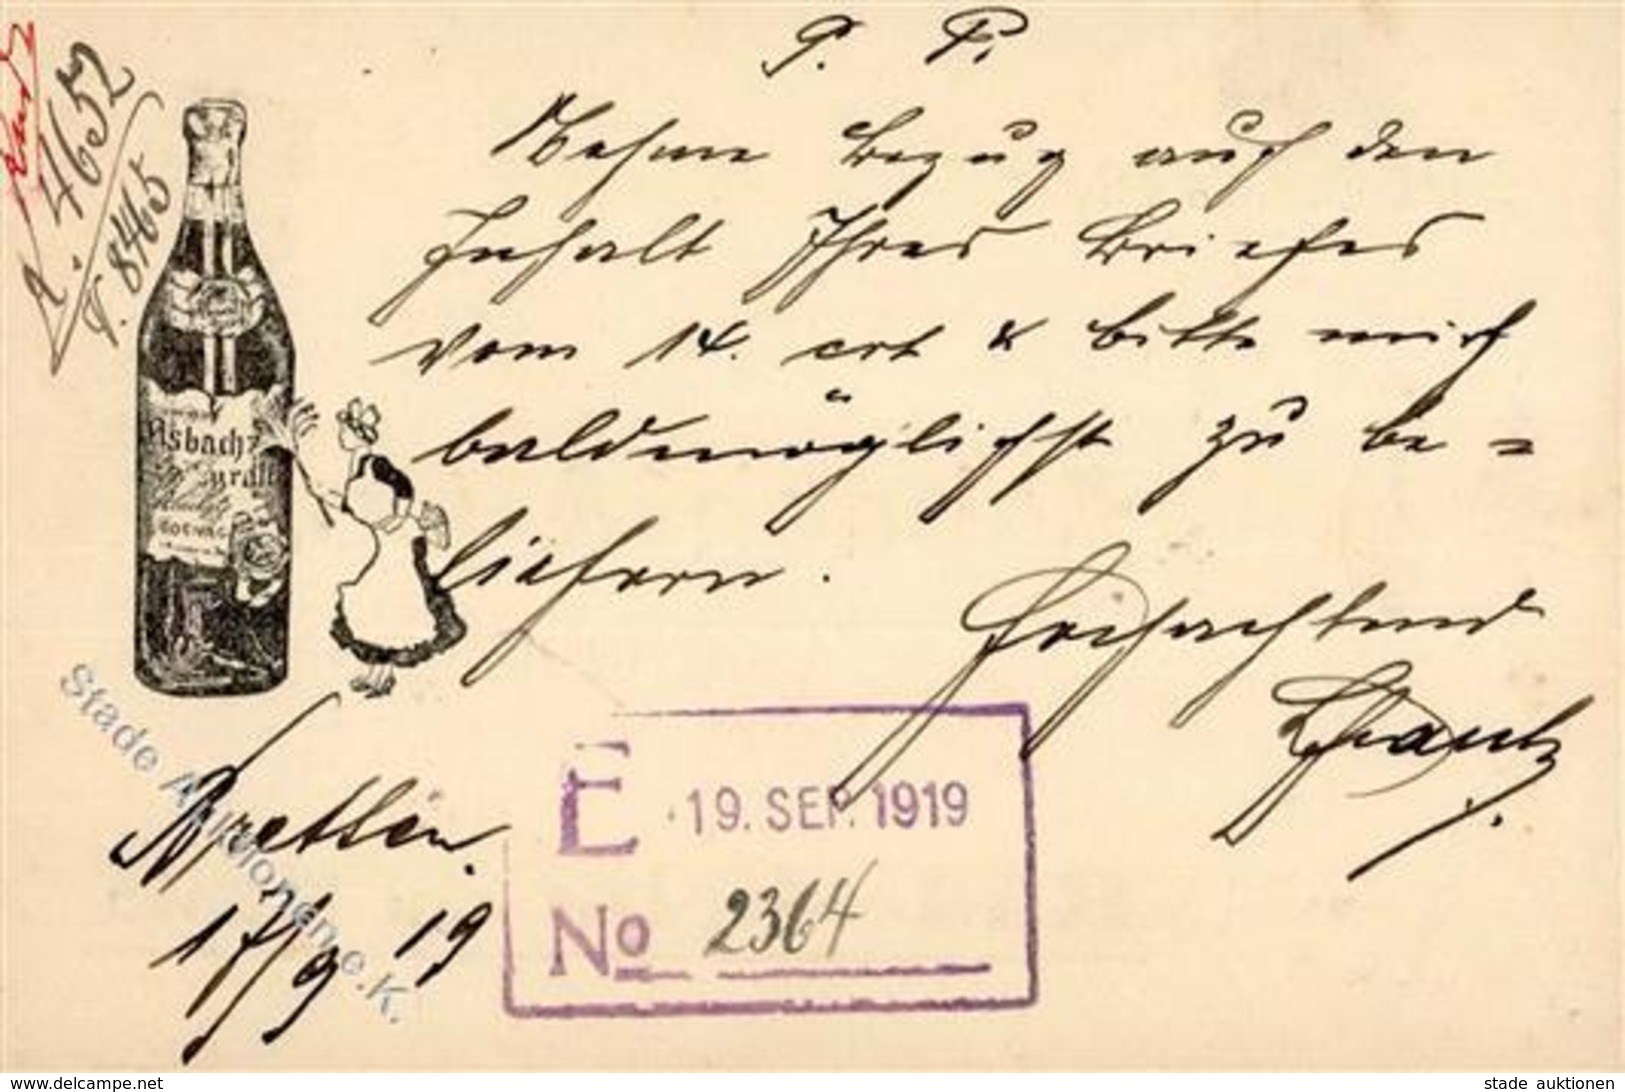 P. P.
A. 4652
V. 8465
Nehme Bezug auf den
Inhalt Ihres Briefes
vom 14. crt & bitte mich
baldmöglichst zu be=
liefern.
Hochachtend
Asbach
Uralt
COGNAC
E 19. SEP. 1919
No 2364
17/9 19
Stade Auktionen e.K.
www.delcampe.net
stade auktionen